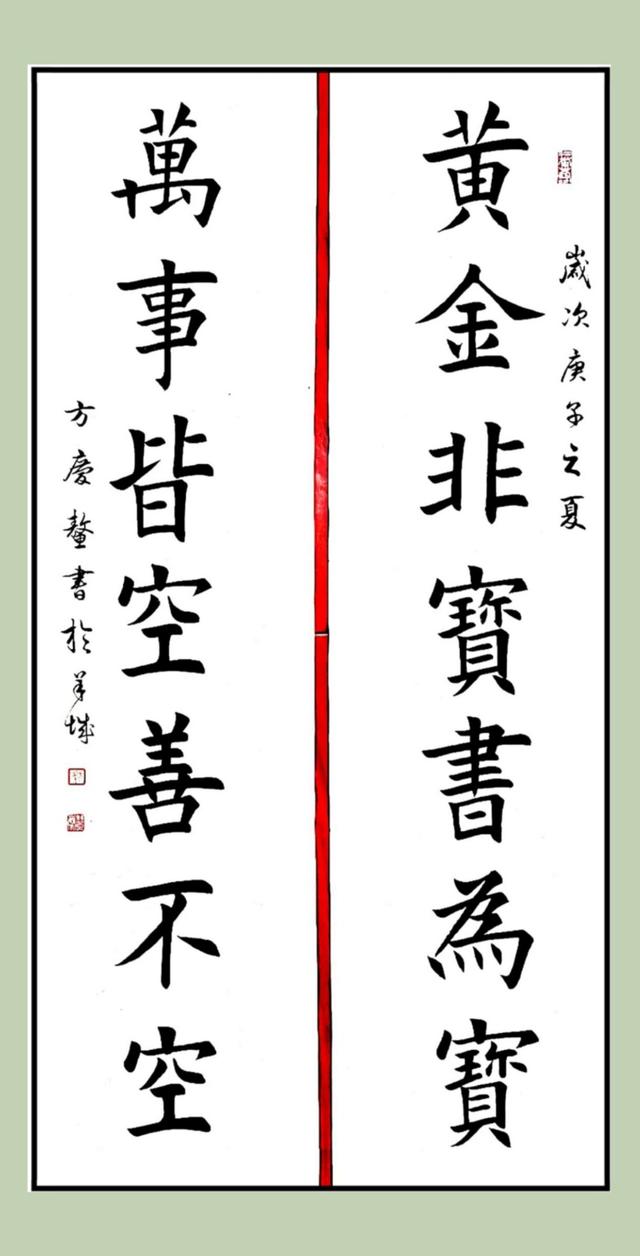 歲次庚子之夏
黄金非寶書為寶
萬事皆空善不空
方慶鼇書於羊城